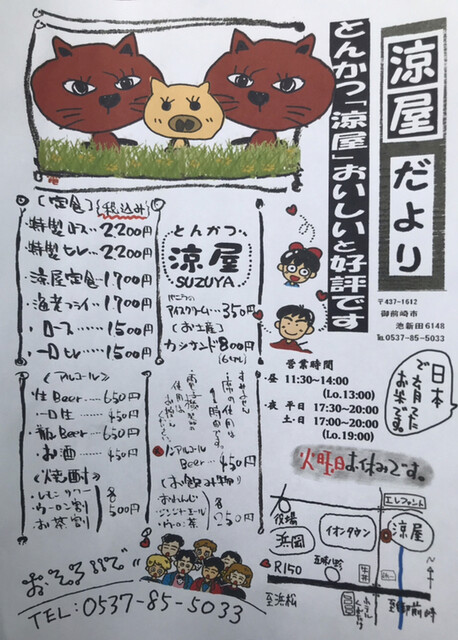 涼屋だより
とんかつ「涼屋」おいしいと好評です
〒437-1612
御前崎市
池新田6148
℡0537-85-5033
日本で育ったお米です。
[定食](税込み)
・特製ロース…2200円
・特製ヒレ…2200円
・涼屋定食…1700円
・海老フライ…1700円
・ロース……1500円
・ヒレ……1500円
とんかつ
涼屋
SUZUYA
バニラの
アイスクリーム…350円
(お土産)
カツサンド…800円
営業時間
・昼 11:30~14:00
(Lo.13:00)
・夜 平日 17:30~20:00
土・日 17:00~20:00
(Lo.19:00)
火曜日お休みです。
《アルコール》
・生Beer…650円
・瓶Beer…650円
・お酒……450円
《焼酎》
・レモンサワー
・ウーロン割
・お茶割
各500円
席の使用は
1時間です。
ノンアルコール
Beer…450円
(お飲み物)
・おれんじ
・ジンジャーエール
・ウーロン茶
各250円
エレファント
役場
浜岡
イオンタウン
涼屋
R150
至浜松
至御前崎
TEL:0537-85-5033